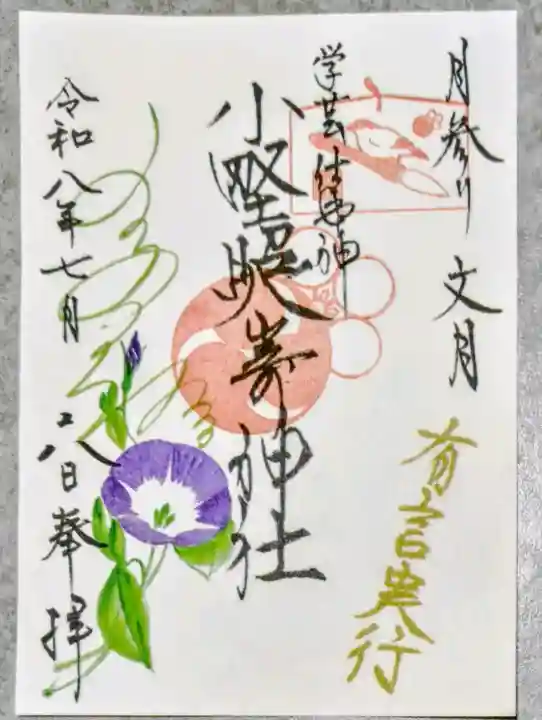 月参り 文月
有言実行
学芸
小野照崎神社
令和八年七月
二八日奉拝